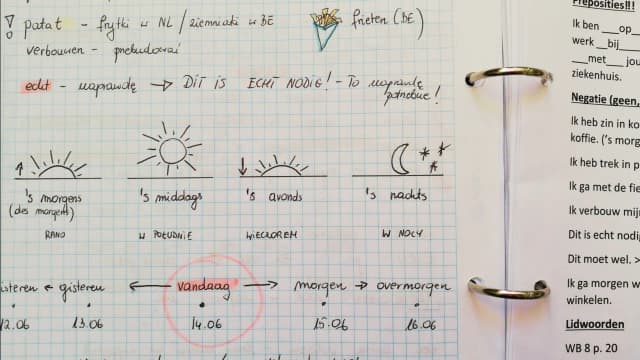 ! patat - frytki w NL / ziemniaki w BE
frieten (BE)
verbouwen - przebudować
echt - naprawdę → DIT IS ECHT NODIG! - To naprawdę
potrzebne!
's morgens
(des morgens)
's middags
's avonds
's nachts
RANO
W POŁUDNIE
WIECZOREM
W NOCY
isteren ← gisteren ← vandaag → morgen → overmorgen
12.06 13.06 14.06 15.06 16.06
Preposities!!!
Ik ben ___op__
werk __bij___
___met___ jou
ziekenhuis.
Negatie (geen,
Ik heb zin in ko
koffie. ('s morg
Ik heb trek in p
Ik ga met de fie
Ik verbouw mij
Dit is echt nodi
Dit moet wel. >
Ik ga morgen w
winkelen.
Lidwoorden
WB 8 p. 20